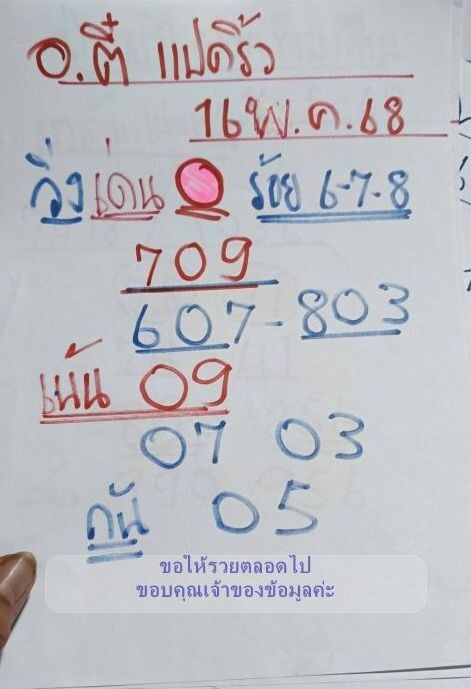 อ.ตี๋ แปดริ้ว
16 พ.ค.68
วิ่ง เด่น 0 ร้อย 6-7-8
709
607-803
เน้น 09
07 03
กัน 05
ขอให้รวยตลอดไป
ขอบคุณเจ้าของข้อมูลค่ะ